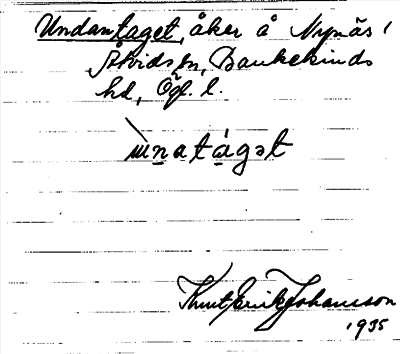 Undantaget, åker å Nynäs,
Åtvids sn, Bankekinds
hd, Ögl. l.
ùnatágət
Knut Erik Johansson
1935